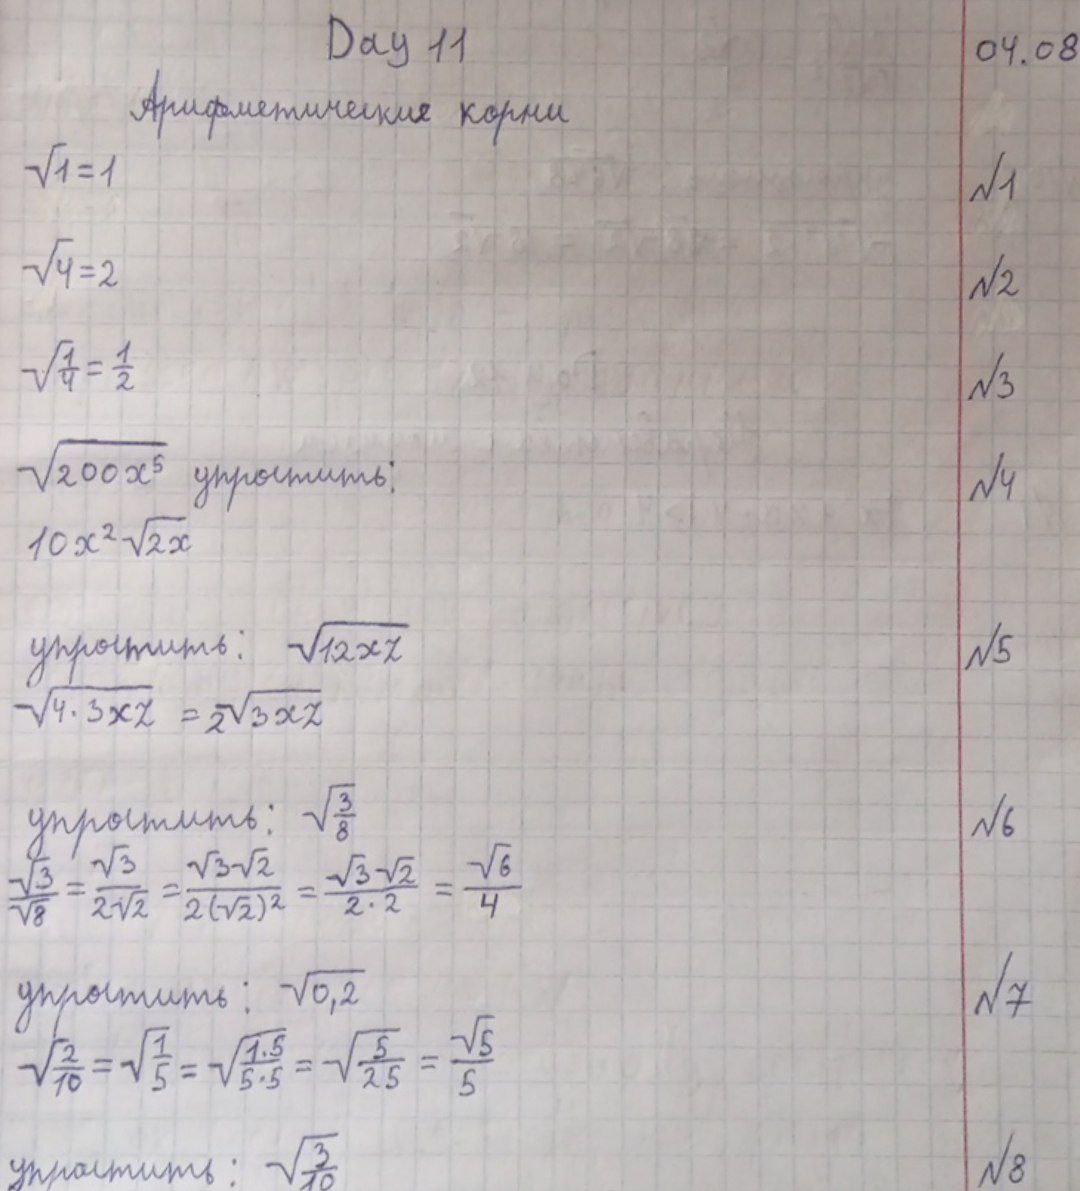 Day 11 04.08
Арифметические корни
√1 = 1 №1
√4 = 2 №2
√(1/4) = 1/2 №3
√(200x⁵) упростить: №4
10x²√(2x)
упростить: √(12xz) №5
√(4·3xz) = 2√(3xz)
упростить: √(3/8) №6
√3/√8 = √3/(2·√2) = (√3·√2)/(2(√2)²) = (√3·√2)/(2·2) = √6/4
упростить: √(0,2) №7
√(2/10) = √(1/5) = √((1·5)/(5·5)) = √(5/25) = √5/5
упростить: √(3/10) №8